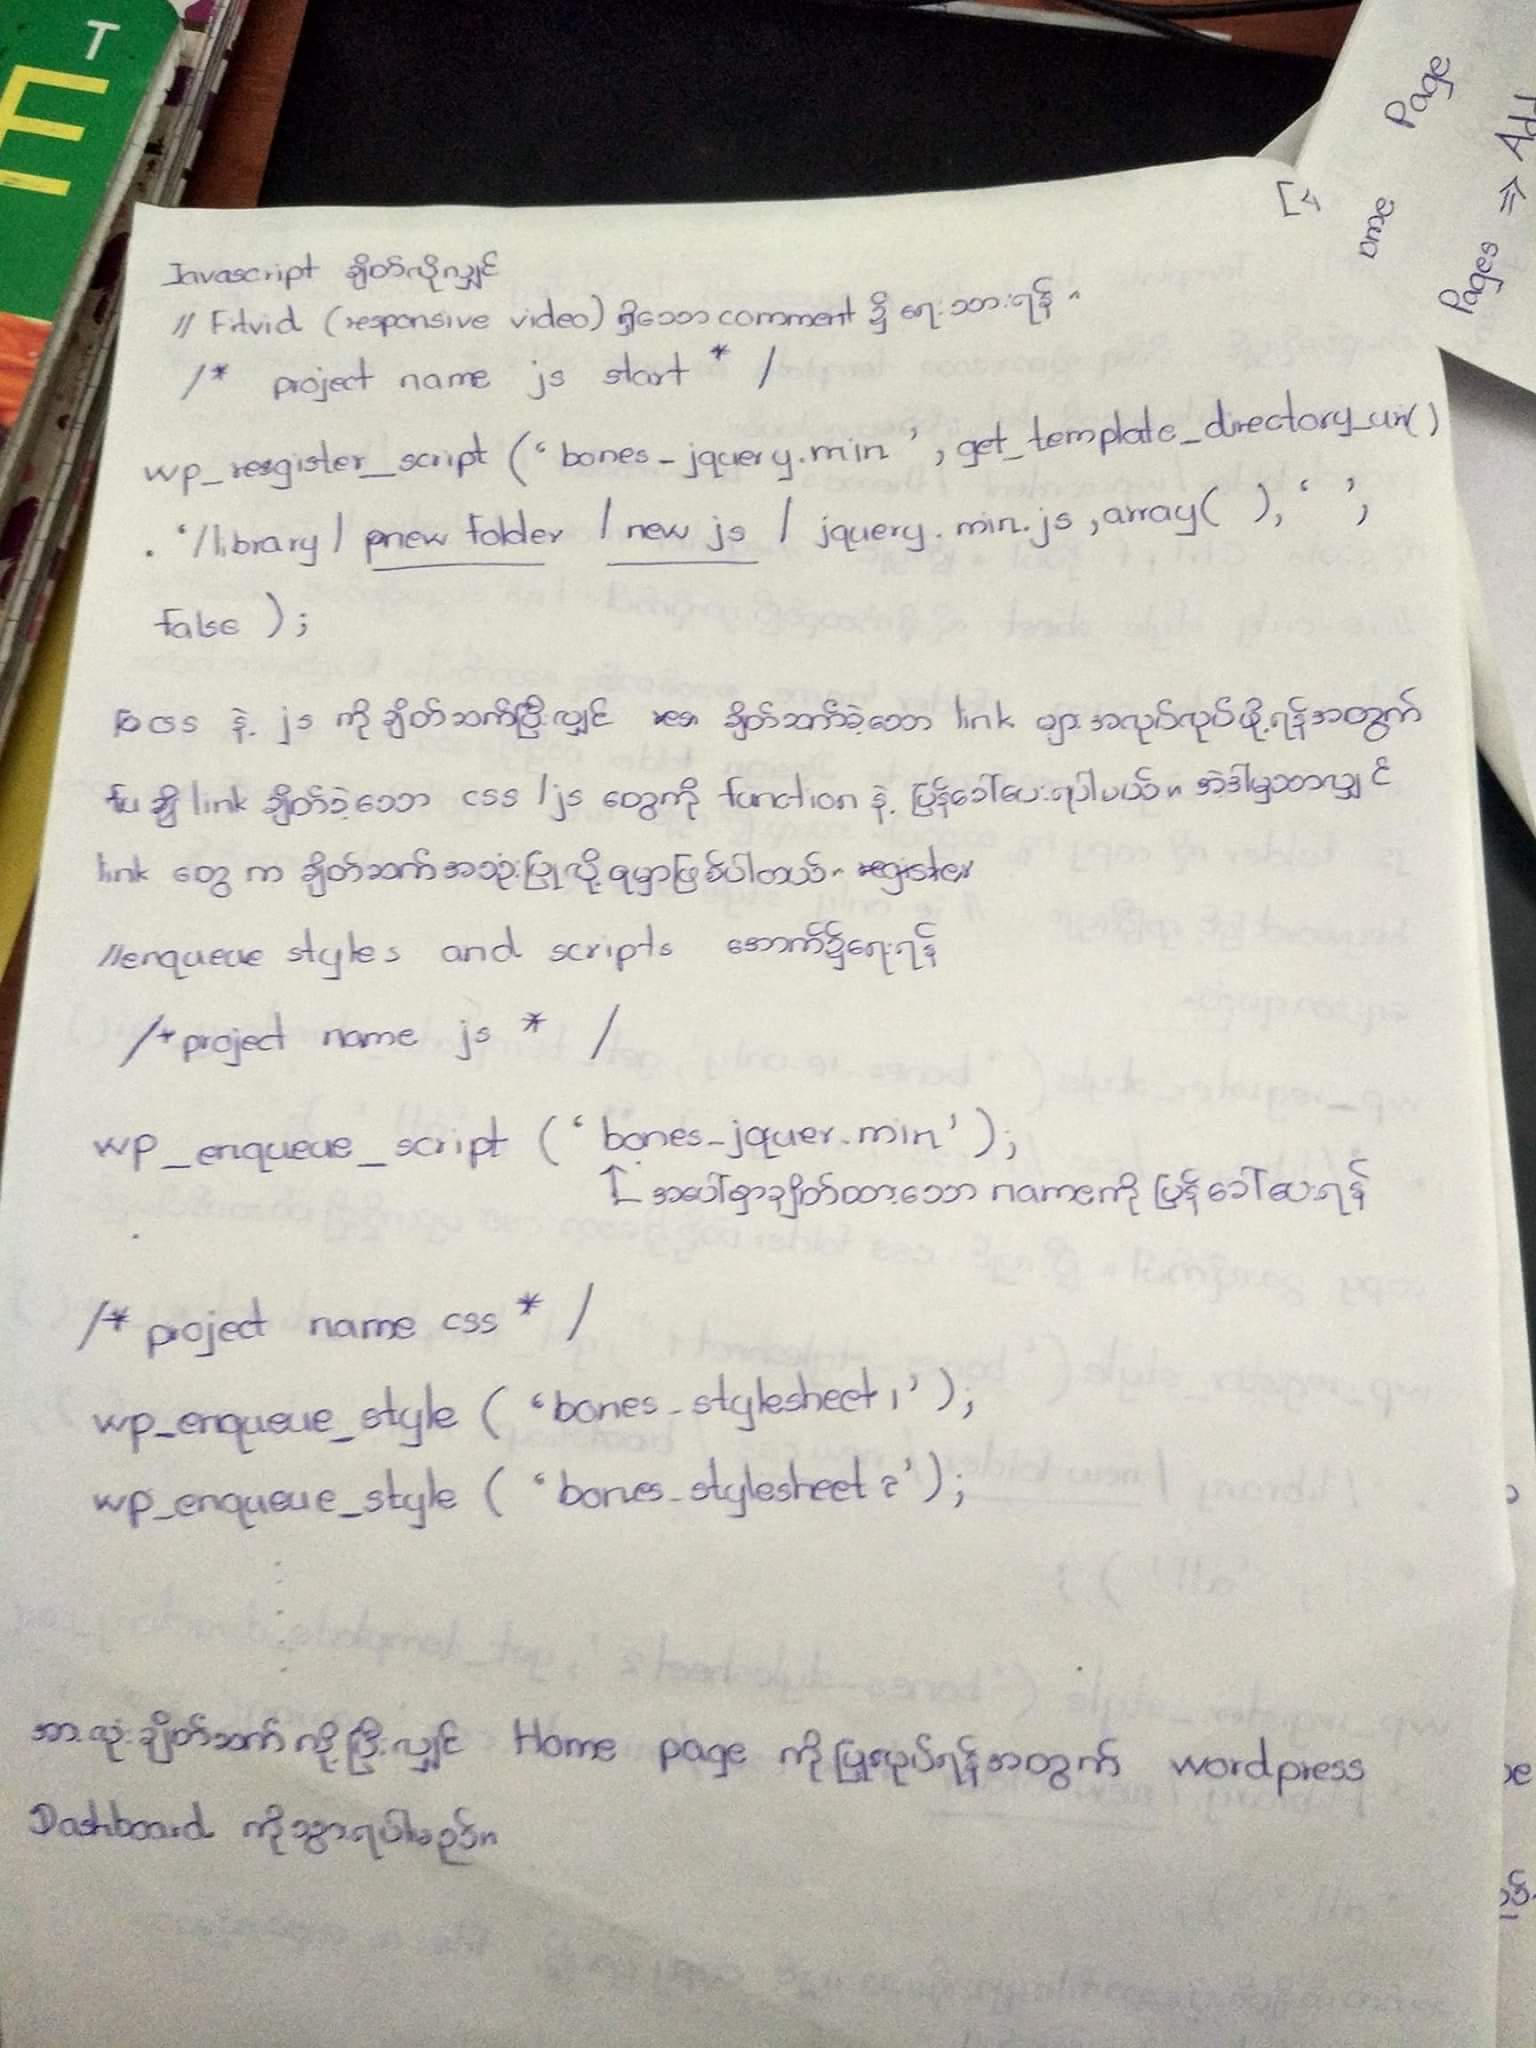 T
E
Page
ame
Pages ⇒ Add
Javascript ချိတ်လိုလျှင်
// Fitvid (responsive video) ရှိသော comment ၌ ရေးသားရန်။
/* project name js start * /
wp_resgister_script ('bones-jquery.min', get_template_directory_uri()
. '/library/ pnew folder / new js / jquery.min.js ,array( ), ' ',
false );
css နဲ့ js ကို ချိတ်ဆက်ပြီးလျှင် ချိတ်ဆက်ခဲ့သော link များ အလုပ်လုပ်ဖို့ရန်အတွက်
link ချိတ်ခဲ့သော css /js တွေကို function နဲ့ ပြန်ခေါ်ပေးရပါမယ်။ အဲဒါမှသာလျှင်
link တွေ က ချိတ်ဆက်အသုံးပြုလို့ ရမှာဖြစ်ပါတယ်။ register
//enqueue styles and scripts အောက်၌ရေးရန်
/*project name js * /
wp_enqueue_script ('bones-jquer.min');
အပေါ်မှာချိတ်ထားသော nameကို ပြန်ခေါ်ပေးရန်
/* project name css * /
wp_enqueue_style ( 'bones-stylesheet1');
wp_enqueue_style ( 'bones-stylesheet2');
အားလုံးချိတ်ဆက်လို့ပြီးလျှင် Home page ကိုပြုလုပ်ရန်အတွက် wordpress
Dashboard ကိုသွားရပါမည်။